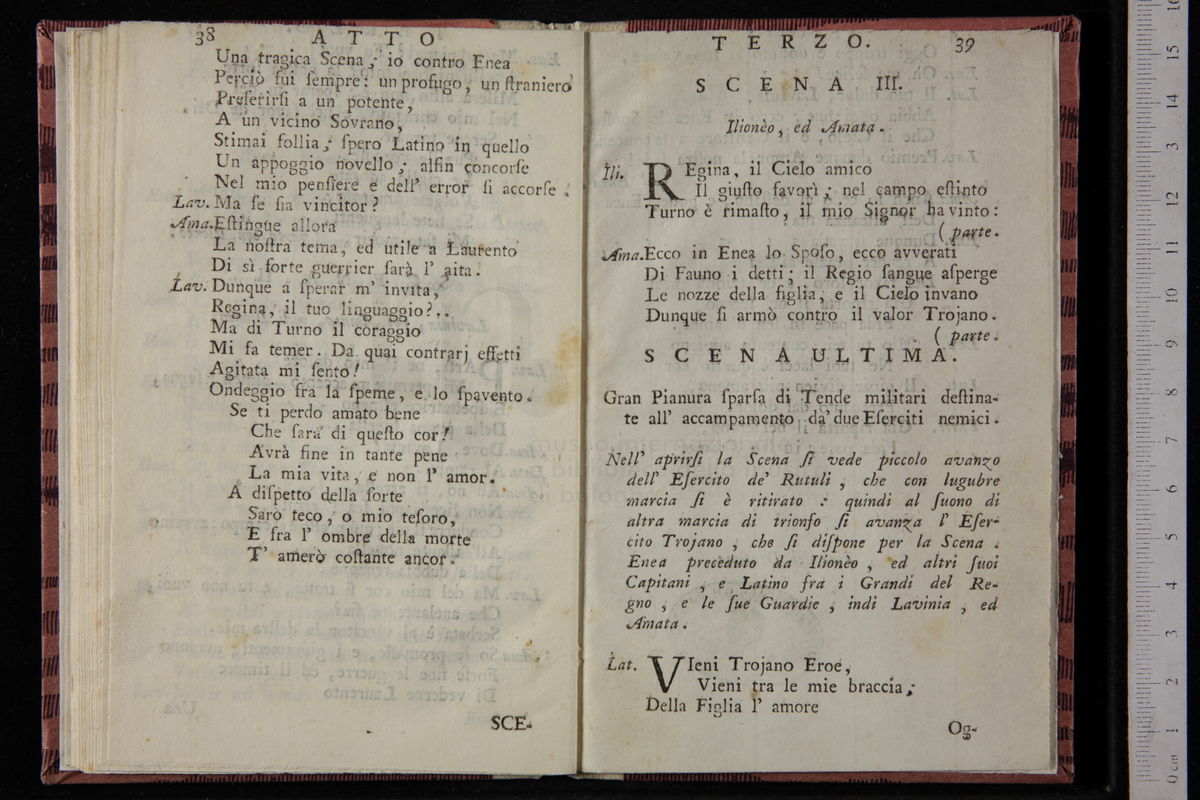 38 ATTO
Una tragica Scena; io contro Enea
Perciò fui ſempre: un profugo, un ſtraniero
Preferirſi a un potente,
A un vicino Sovrano,
Stimai follia; ſpero Latino in quello
Un appoggio novello; alfin concorſe
Nel mio penſiere e dell' error ſi accorſe.
Lav. Ma ſe ſia vincitor?
Ama. Eſtingue allora
La noſtra tema, ed utile a Laurento
Di sì forte guerrier ſarà l' aita.
Lav. Dunque a ſperar m' invita,
Regina, il tuo linguaggio?..
Ma di Turno il coraggio
Mi fa temer. Da quai contrarj effetti
Agitata mi ſento!
Ondeggio fra la ſpeme, e lo ſpavento.
Se ti perdo amato bene
Che ſarà di queſto cor!
Avrà fine in tante pene
La mia vita, e non l' amor.
A diſpetto della ſorte
Sarò teco, o mio teſoro,
E fra l' ombre della morte
T' amerò coſtante ancor.
SCE-
TERZO. 39
SCENA III.
Ilionèo, ed Amata.
Ili. REgina, il Cielo amico
Il giuſto favorì; nel campo eſtinto
Turno è rimaſto, il mio Signor ha vinto:
( parte.
Ama. Ecco in Enea lo Spoſo, ecco avverati
Di Fauno i detti; il Regio ſangue aſperge
Le nozze della figlia, e il Cielo invano
Dunque ſi armò contro il valor Trojano.
( parte.
SCENA ULTIMA.
Gran Pianura ſparſa di Tende militari deſtina-
te all' accampamento da' due Eſerciti nemici.
Nell' aprirſi la Scena ſi vede piccolo avanzo
dell' Eſercito de' Rutuli, che con lugubre
marcia ſi è ritirato: quindi al ſuono di
altra marcia di trionfo ſi avanza l' Eſer-
cito Trojano, che ſi diſpone per la Scena.
Enea preceduto da Ilionèo, ed altri ſuoi
Capitani, e Latino fra i Grandi del Re-
gno, e le ſue Guardie, indi Lavinia, ed
Amata.
Lat. VIeni Trojano Eroe,
Vieni tra le mie braccia;
Della Figlia l' amore
Og-